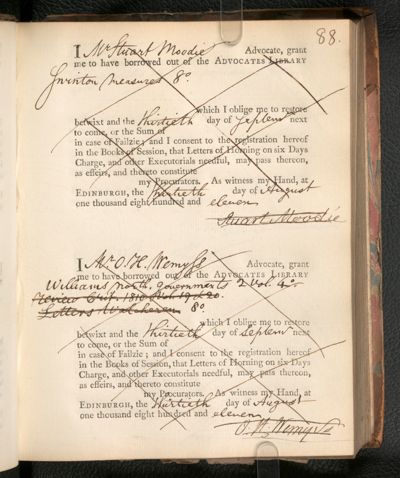 88.
I Mr Stuart Moodie Advocate, grant
me to have borrowed out of the ADVOCATES LIBRARY
Swinton measures 8o
which I oblige me to restore
betwixt and the Thirtieth day of Septemr next
to come, or the Sum of
in case of Failzie; and I consent to the registration hereof
in the Books of Session, that Letters of Horning on six Days
Charge, and other Executorials needful, may pass thereon,
as effeirs, and thereto constitute
my Procurators. As witness my Hand, at
EDINBURGH, the Thirtieth day of August
one thousand eight hundred and eleven
Stuart Moodie
I Mr O. H. Wemyss Advocate, grant
me to have borrowed out of the ADVOCATES LIBRARY
Williams north. governments 2 Vol 4o
Review 1810 Vol 19
Letters Walcheren 8o
which I oblige me to restore
betwixt and the Thirtieth day of Septemr next
to come, or the Sum of
in case of Failzie; and I consent to the registration hereof
in the Books of Session, that Letters of Horning on six Days
Charge, and other Executorials needful, may pass thereon,
as effeirs, and thereto constitute
my Procurators. As witness my Hand, at
EDINBURGH, the Thirtieth day of August
one thousand eight hundred and eleven
O. H. Wemyss